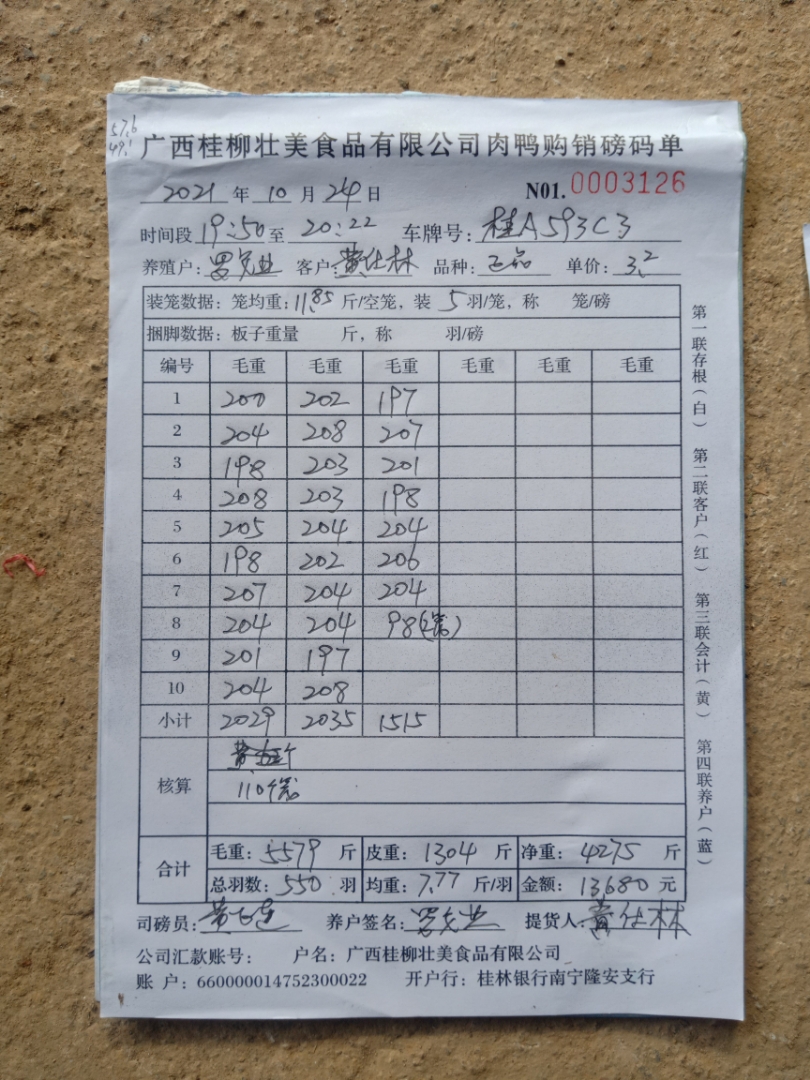 57.6
49.1
广西桂柳壮美食品有限公司肉鸭购销磅码单
2021 年 10 月 24 日 N01. 0003126
时间段 19:50 至 20:22 车牌号: 桂A593C3
养殖户: 罗克业 客户: 黄仕林 品种: 正品 单价: 3.2
装笼数据: 笼均重: 11.85 斤/空笼, 装 5 羽/笼, 称 笼/磅
捆脚数据: 板子重量 斤, 称 羽/磅
编号 毛重 毛重 毛重 毛重 毛重 毛重
1 200 202 197
2 204 208 207
3 198 203 201
4 208 203 198
5 205 204 204
6 198 202 206
7 207 204 204
8 204 204 98
9 201 197
10 204 208
小计 2029 2035 1515
核算
110个笼
合计 毛重: 5579 斤 皮重: 1304 斤 净重: 4275 斤
总羽数: 550 羽 均重: 7.77 斤/羽 金额: 13680 元
司磅员: 养户签名: 罗克业 提货人: 黄仕林
公司汇款账号: 户名: 广西桂柳壮美食品有限公司
账 户: 660000014752300022 开户行: 桂林银行南宁隆安支行
第一联存根(白) 第二联客户(红) 第三联会计(黄) 第四联养户(蓝)